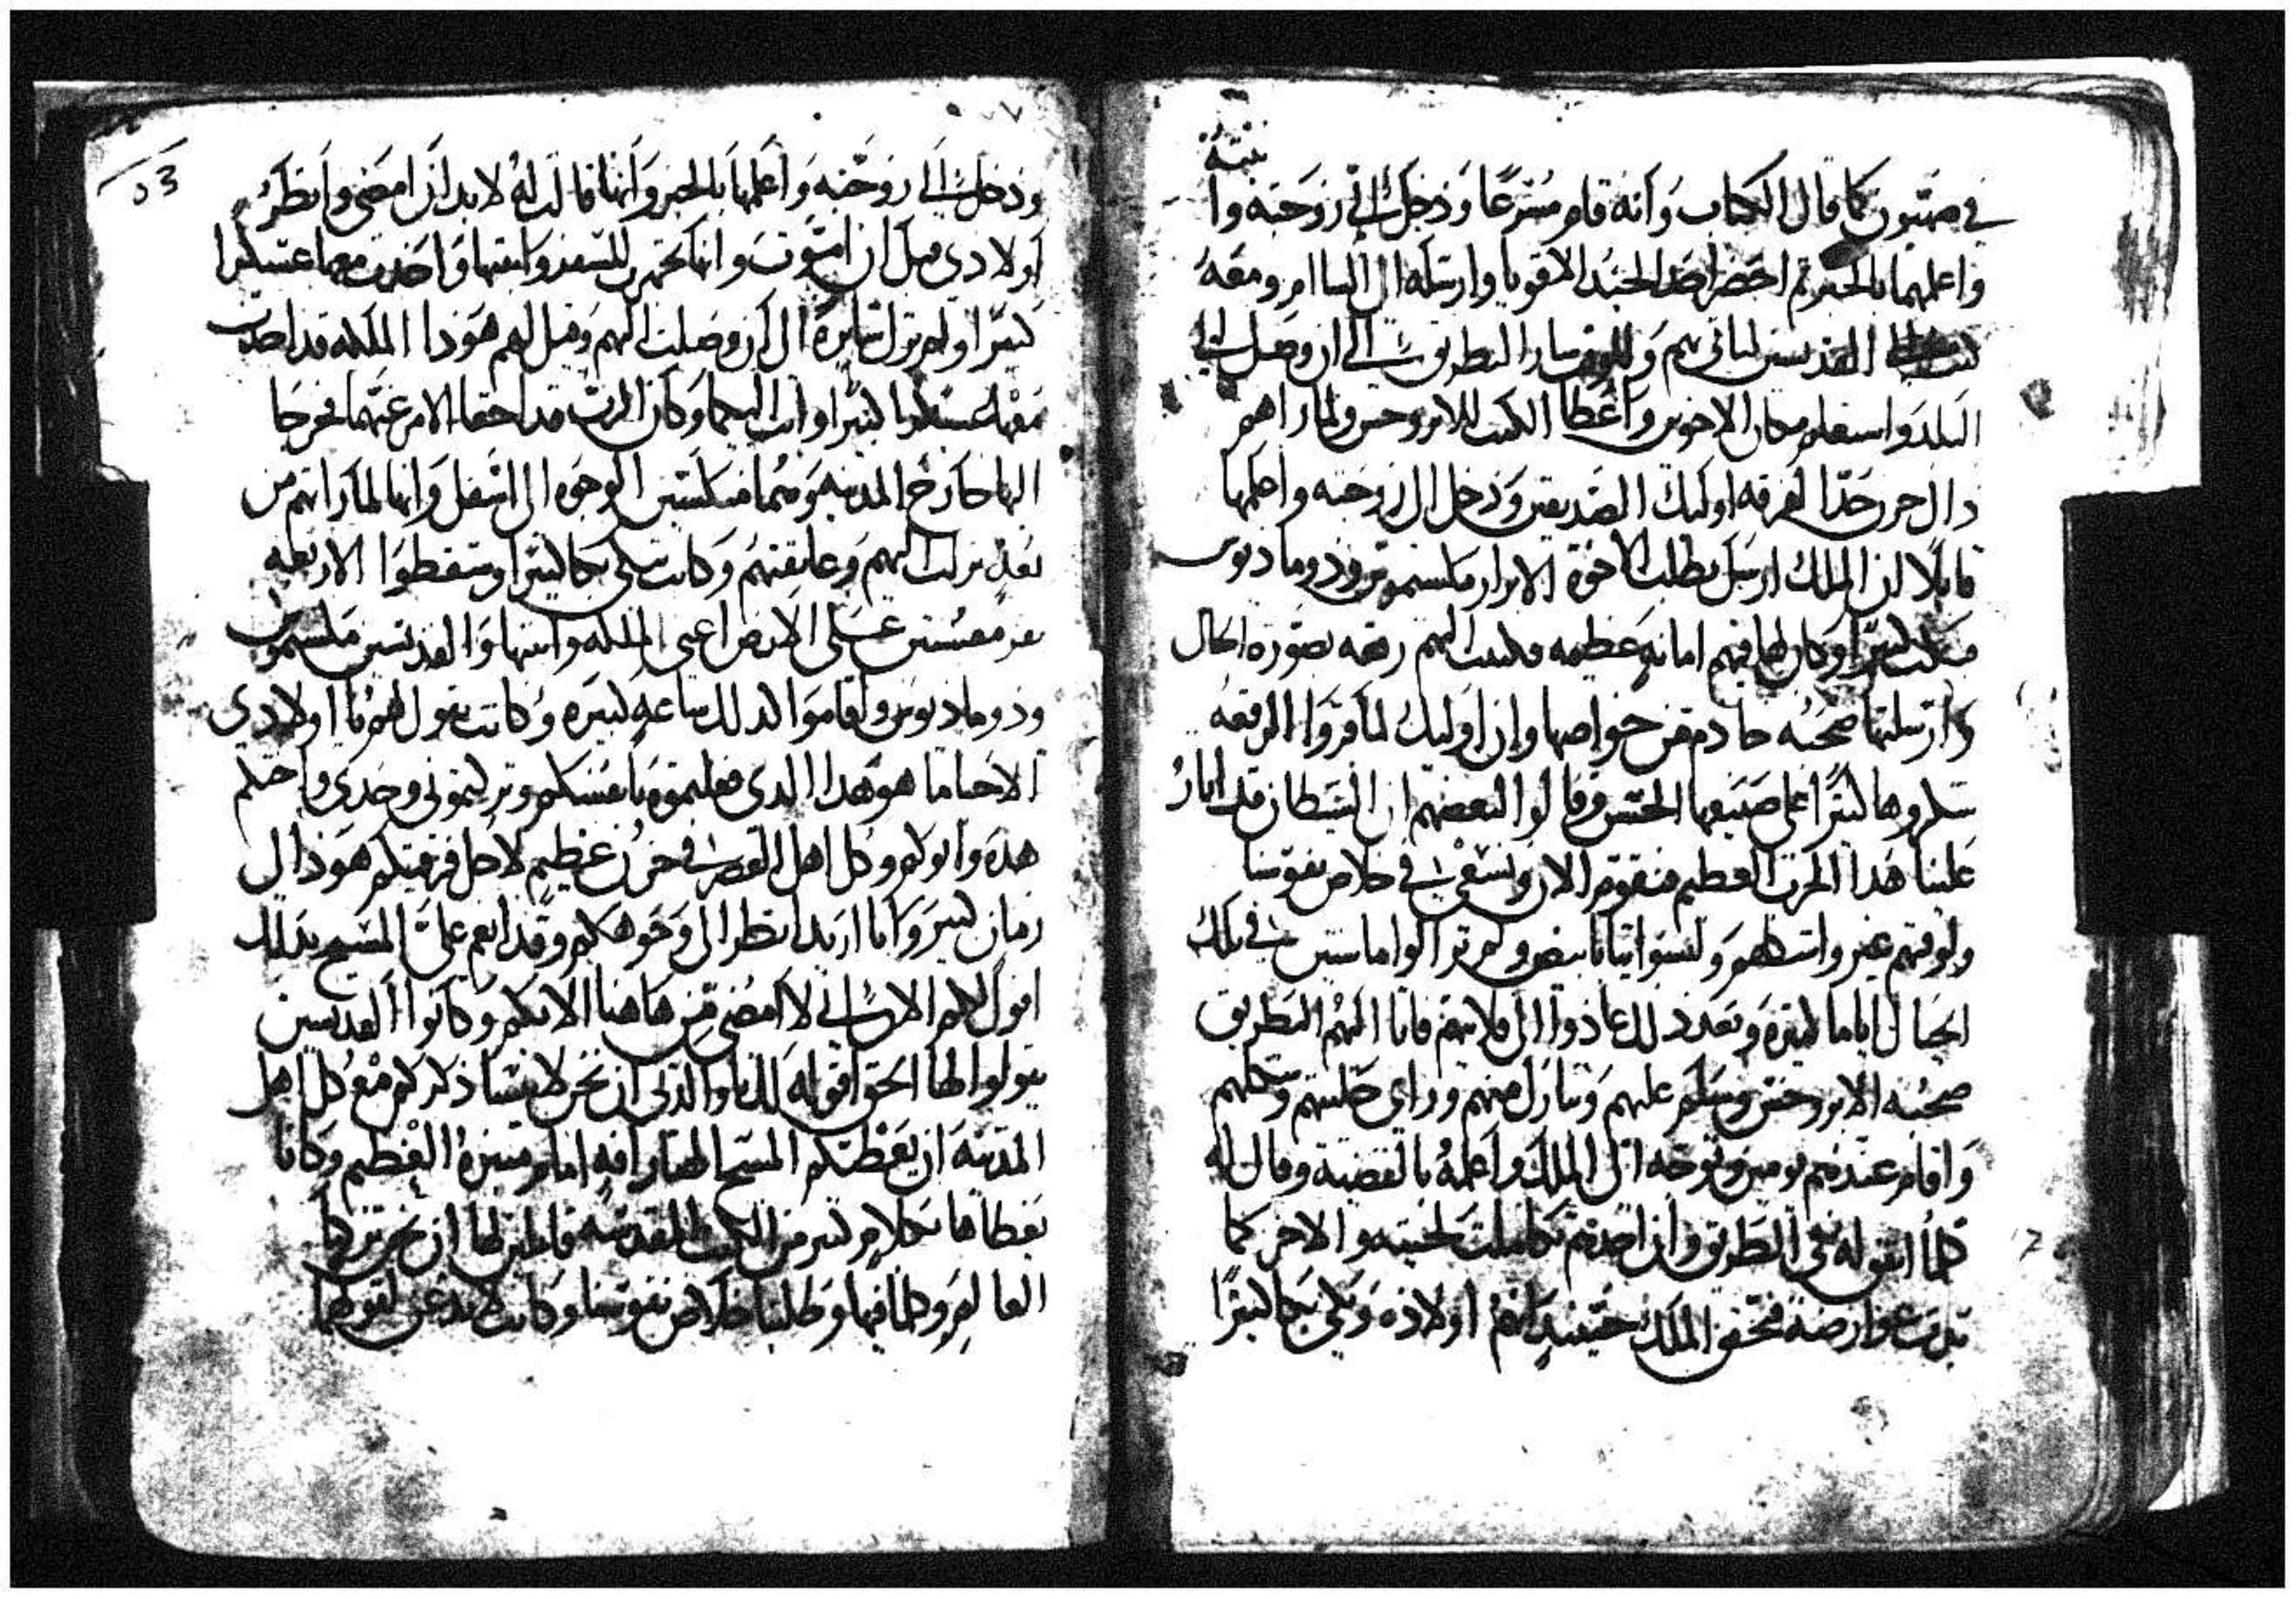 بنته
في صهيون كما قال الكتاب وانه قام مسرعا ودخل الى زوجته وا
واعلمها بالخبر ثم احضر احد الجند الاقويا وارسله الى الشام ومعه
القديسين لياتي بهم وللوقت سار البطريق الى ان وصل الى
البلد واستعلم مكان الاخوين واعطا الكتب للابروحس ولما راهم
دال حزن جدا لفرقه اوليك الصديقين ودخل الى زوجته واعلمها
قايلا ان الملك ارسل يطلب الاخوة الابرار مكسيموس ودوماديوس
فبكت كثيرا وكان لها فيهم امانه عظيمه فكتبت اليهم رقعه بصورة الحال
وارسلتها صحبة خادم من خواصها وان اوليك لما قروا الرقعه
شكروها كثيرا على صنيعها الحسن وقالوا لبعضهم ان الشيطان قد اثار
علينا هذا الحرب العظيم فنقوم الان ونسعى في خلاص نفوسنا
ولوقتهم غيروا شكلهم ولبسوا ثيابا بيض ولم يزالوا ماشيين في تلك
الجبال اياما كثيرة وبعد ذلك عادوا الى قلايتهم فاتا اليهم البطريق
صحبة الابروحس وسلم عليهم وتبارك منهم وراي حليتهم وشكلهم
واقام عندهم يومين وتوجه الى الملك واعلمه بالقضية وقال له
كلما اتفق له في الطريق وان احدهم تكاملت لحيته والاخر كما
بدت عوارضه فتحقق الملك حينيد انهم اولاده وبكي بكا كثيرا
53
ودخل الى زوجته واعلمها بالخبر وانها قالت له لابد ان امضي وانظر
اولادي قبل ان اموت وانها تجهزت للسفر وابنتها واخذت معها عسكرا
كثيرا ولم تزل سايرة الى ان وصلت اليهم وقيل لهم هوذا الملكه قد اخذت
معها عسكرا كثيرا وات اليكما وكان الرب قد اخفا الامر عنهما فخرجا
اليها خارج المدينه وهما منكسين الوجوه الى اسفل وانها لما راتهم من
بعد نزلت اليهم وعانقتهم وكانت تبكي بكا كثيرا وسقطوا الاربعه
على الارض اعني الملكه وابنتها والقديسين مكسيموس
ودوماديوس واقاموا كذلك ساعه كبيره وكانت تقول لهم يا اولادي
الاحبا ما هو هدا الدي فعلتموه بانفسكم وتركتموني وحدي واختكم
هده وابوكم وكل اهل القصر في حزن عظيم لاجل فرقتكم هوذا لي
زمان كبير وانا اريد انظر الى وجوهكم وقد انعم علي المسيح بذلك
اقول لكم الان اني لا امضي من هاهنا الا بكم وكانوا القديسين
يقولوا لها الحق اقوله لك يا والدتي ان نحن لا ننسا ذكركم مع كل اهل
المدينه ان يعطيكم المسيح الهنا رافه امام منبره العظيم وكانا
يعظاها بكلام كثير من الكتب المقدسه قايلين لها ان نحن تركنا
العالم وكلما فيها وطلبنا خلاص نفوسنا وكانت لا تدعن لقولهما